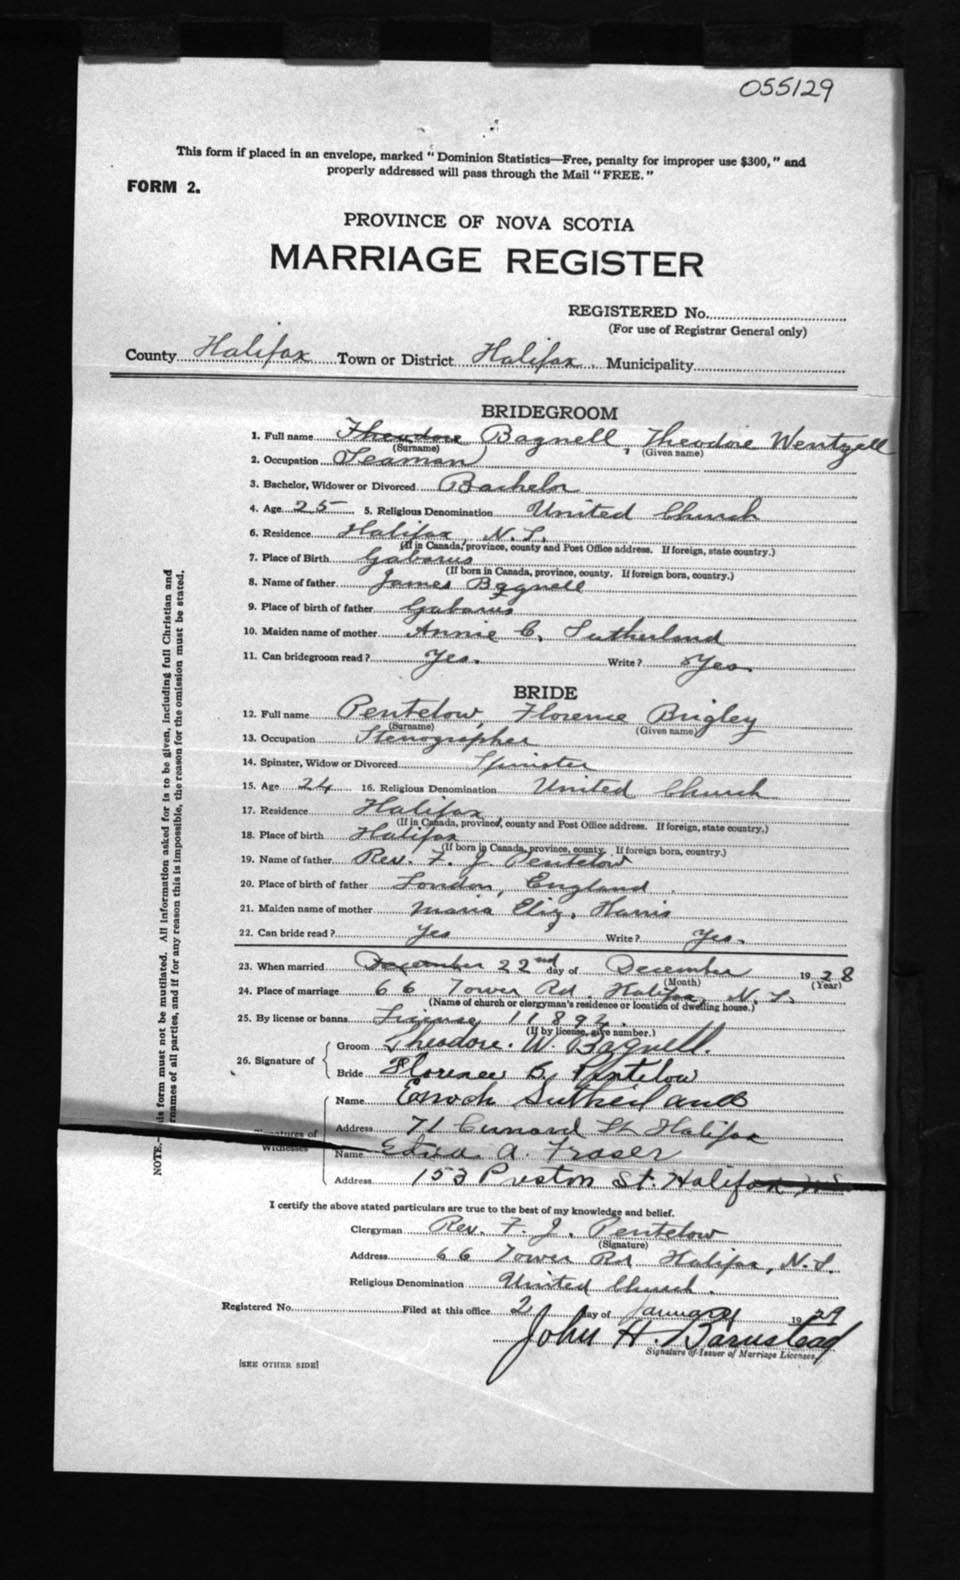 055129
This form if placed in an envelope, marked "Dominion Statistics—Free, penalty for improper use $300," and
properly addressed will pass through the Mail "FREE."
FORM 2.
PROVINCE OF NOVA SCOTIA
MARRIAGE REGISTER
REGISTERED No.
(For use of Registrar General only)
County Halifax Town or District Halifax. Municipality
BRIDEGROOM
1. Full name Theodore Bagnell, Theodore Wentzell
(Surname) (Given name)
2. Occupation Seaman
3. Bachelor, Widower or Divorced Bachelor
4. Age 25 5. Religious Denomination United Church
6. Residence Halifax, N.S.
(If in Canada, province, county and Post Office address. If foreign, state country.)
7. Place of Birth Gabarus
(If born in Canada, province, county. If foreign born, country.)
8. Name of father James Bagnell
9. Place of birth of father Gabarus
10. Maiden name of mother Annie C. Sutherland
11. Can bridegroom read? Yes. Write? Yes.
BRIDE
12. Full name Pentelow, Florence Brigley
(Surname) (Given name)
13. Occupation Stenographer
14. Spinster, Widow or Divorced Spinster
15. Age 24 16. Religious Denomination United Church
17. Residence Halifax
(If in Canada, province, county and Post Office address. If foreign, state country.)
18. Place of birth Halifax
(If born in Canada, province, county. If foreign born, country.)
19. Name of father Rev. F. J. Pentelow
20. Place of birth of father London, England.
21. Maiden name of mother Maria Eliz. Harris
22. Can bride read? Yes Write? Yes.
23. When married December 22nd day of December 1928
(Month) (Year)
24. Place of marriage 66 Tower Rd. Halifax, N.S.
(Name of church or clergyman's residence or location of dwelling house.)
25. By license or banns License 11892.
(If by license, give number.)
26. Signature of
Groom Theodore. W. Bagnell.
Bride Florence B. Pentelow
Signatures of Witnesses
Name Enoch Sutherland
Address 71 Cunard St Halifax
Name Edna A. Fraser
Address 153 Preston St. Halifax N.S.
I certify the above stated particulars are true to the best of my knowledge and belief.
Clergyman Rev. F. J. Pentelow
(Signature)
Address 66 Tower Rd Halifax, N.S.
Religious Denomination United Church.
Registered No. Filed at this office 2 day of January 1929
John H. Barnstead
Signature of Issuer of Marriage Licenses
[SEE OTHER SIDE]
NOTE.—This form must not be mutilated. All information asked for is to be given, including full Christian and
surnames of all parties, and if for any reason this is impossible, the reason for the omission must be stated.